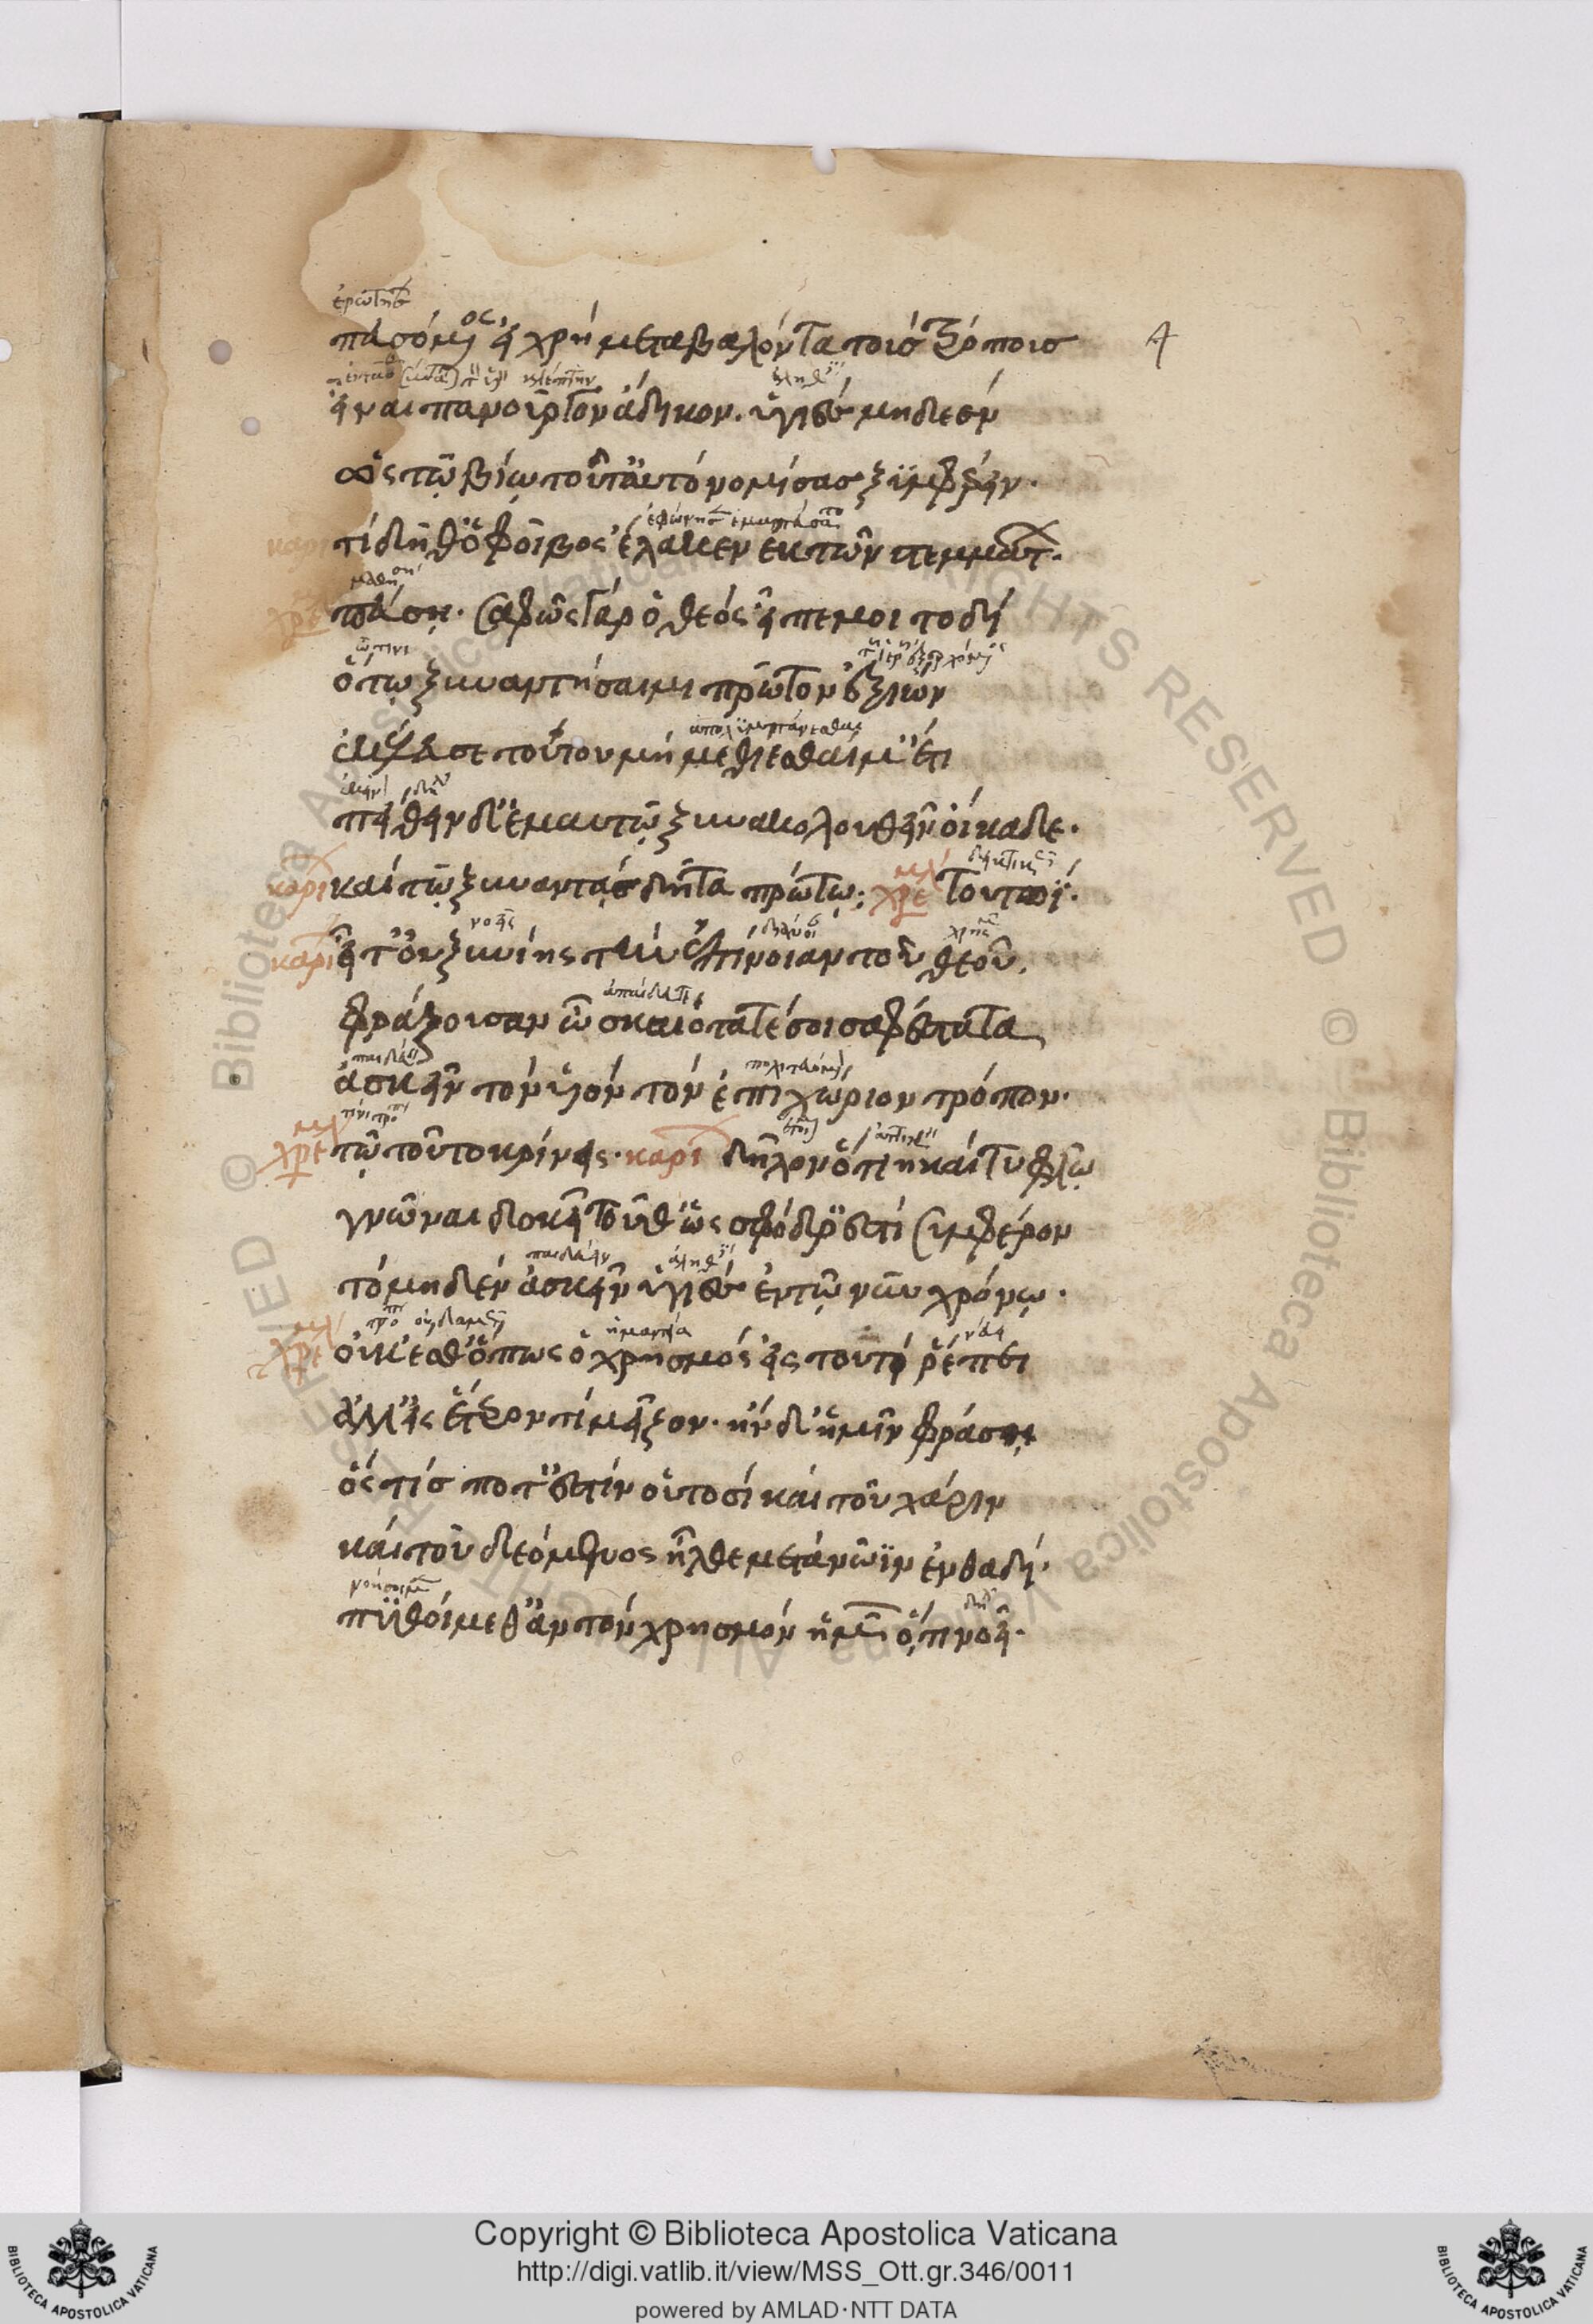 πευσόμενος εἰ χρὴ μεταβαλόντα τοὺς τρόπους
4
εἶναι πανοῦργον ἄδικον. ὑγιὲς μηδὲ ἓν
ὡς τῷ βίῳ τοῦτ' αὐτὸ νομίσας ξυμφέρειν.
τί δῆθ' ὁ φοῖβος ἔλακεν ἐκ τῶν στεμμάτων.
χρε πεύσῃ. σαφῶς γὰρ ὁ θεὸς εἶπε μοι τοδί
ὅτῳ ξυναντήσαιμι πρῶτον ἐξιών
ἐκέλευσε τούτου μὴ μεθίεσθαί μ' ἔτι
πείθειν δ' ἐμαυτῷ ξυνακολουθεῖν οἴκαδε.
καρι καὶ τῷ ξυναντᾷς δῆτα πρώτῳ; χρε τουτωΐ.
καρι εἶτ' οὐ ξυνίης τὴν ἐπίνοιαν τοῦ θεοῦ.
φράζουσαν ὦ σκαιότατέ σοι σαφέστατα
ἀσκεῖν τὸν υἱὸν τὸν ἐπιχώριον τρόπον.
χρε τῷ τοῦτο κρίνεις. καρι δῆλον ὁτιὴ καὶ τυφλῷ
γνῶναι δοκεῖ τοῦθ' ὡς σφόδρ' ἐστὶ συμφέρον
τὸ μηδὲν ἀσκεῖν ὑγιὲς ἐν τῷ νῦν χρόνῳ.
χρε οὐκ ἔσθ' ὅπως ὁ χρησμὸς εἰς τοῦτο ῥέπει
ἀλλ' εἰς ἕτερόν τι μεῖζον. ἢν δ' ἡμῖν φράσῃ
ὅστις ποτ' ἐστὶν οὑτοσὶ καὶ τοῦ χάριν
καὶ τοῦ δεόμενος ἦλθε μετὰ νῶϊν ἐνθαδί.
πυθοίμεθ' ἂν τὸν χρησμὸν ἡμῶν ὅ,τι νοεῖ.
Copyright © Biblioteca Apostolica Vaticana
http://digi.vatlib.it/view/MSS_Ott.gr.346/0011
powered by AMLAD·NTT DATA
BIBLIOTECA APOSTOLICA VATICANA
BIBLIOTECA APOSTOLICA VATICANA